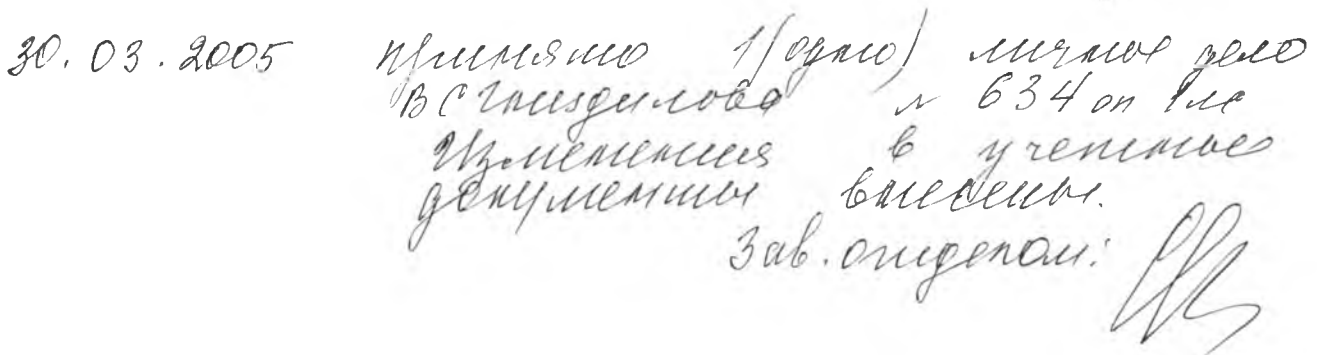 30.03.2005 принято 1(одно) личное дело
ВС Гнездилова № 634 оп 1лс
Изменения в учетные
документы внесены.
Зав. отделом: